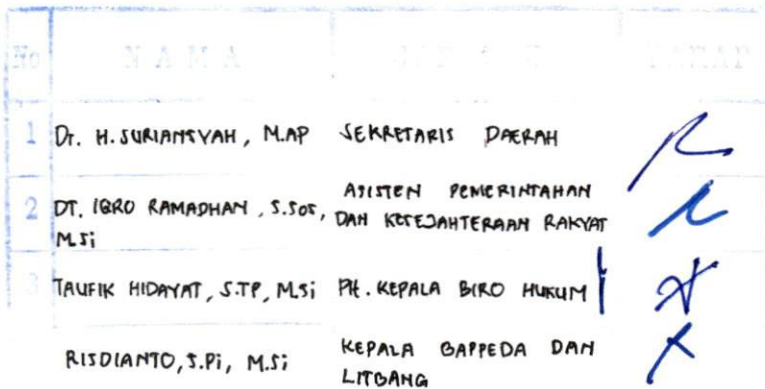 No NAMA PARAF
1 Dr. H. SURIANSYAH, M.AP SEKRETARIS DAERAH
2 DT. IQRO RAMADHAN, S.Sos, M.Si ASISTEN PEMERINTAHAN DAN KESEJAHTERAAN RAKYAT
3 TAUFIK HIDAYAT, S.TP, M.Si PH. KEPALA BIRO HUKUM
RISDIANTO, S.Pi, M.Si KEPALA BAPPEDA DAN LITBANG